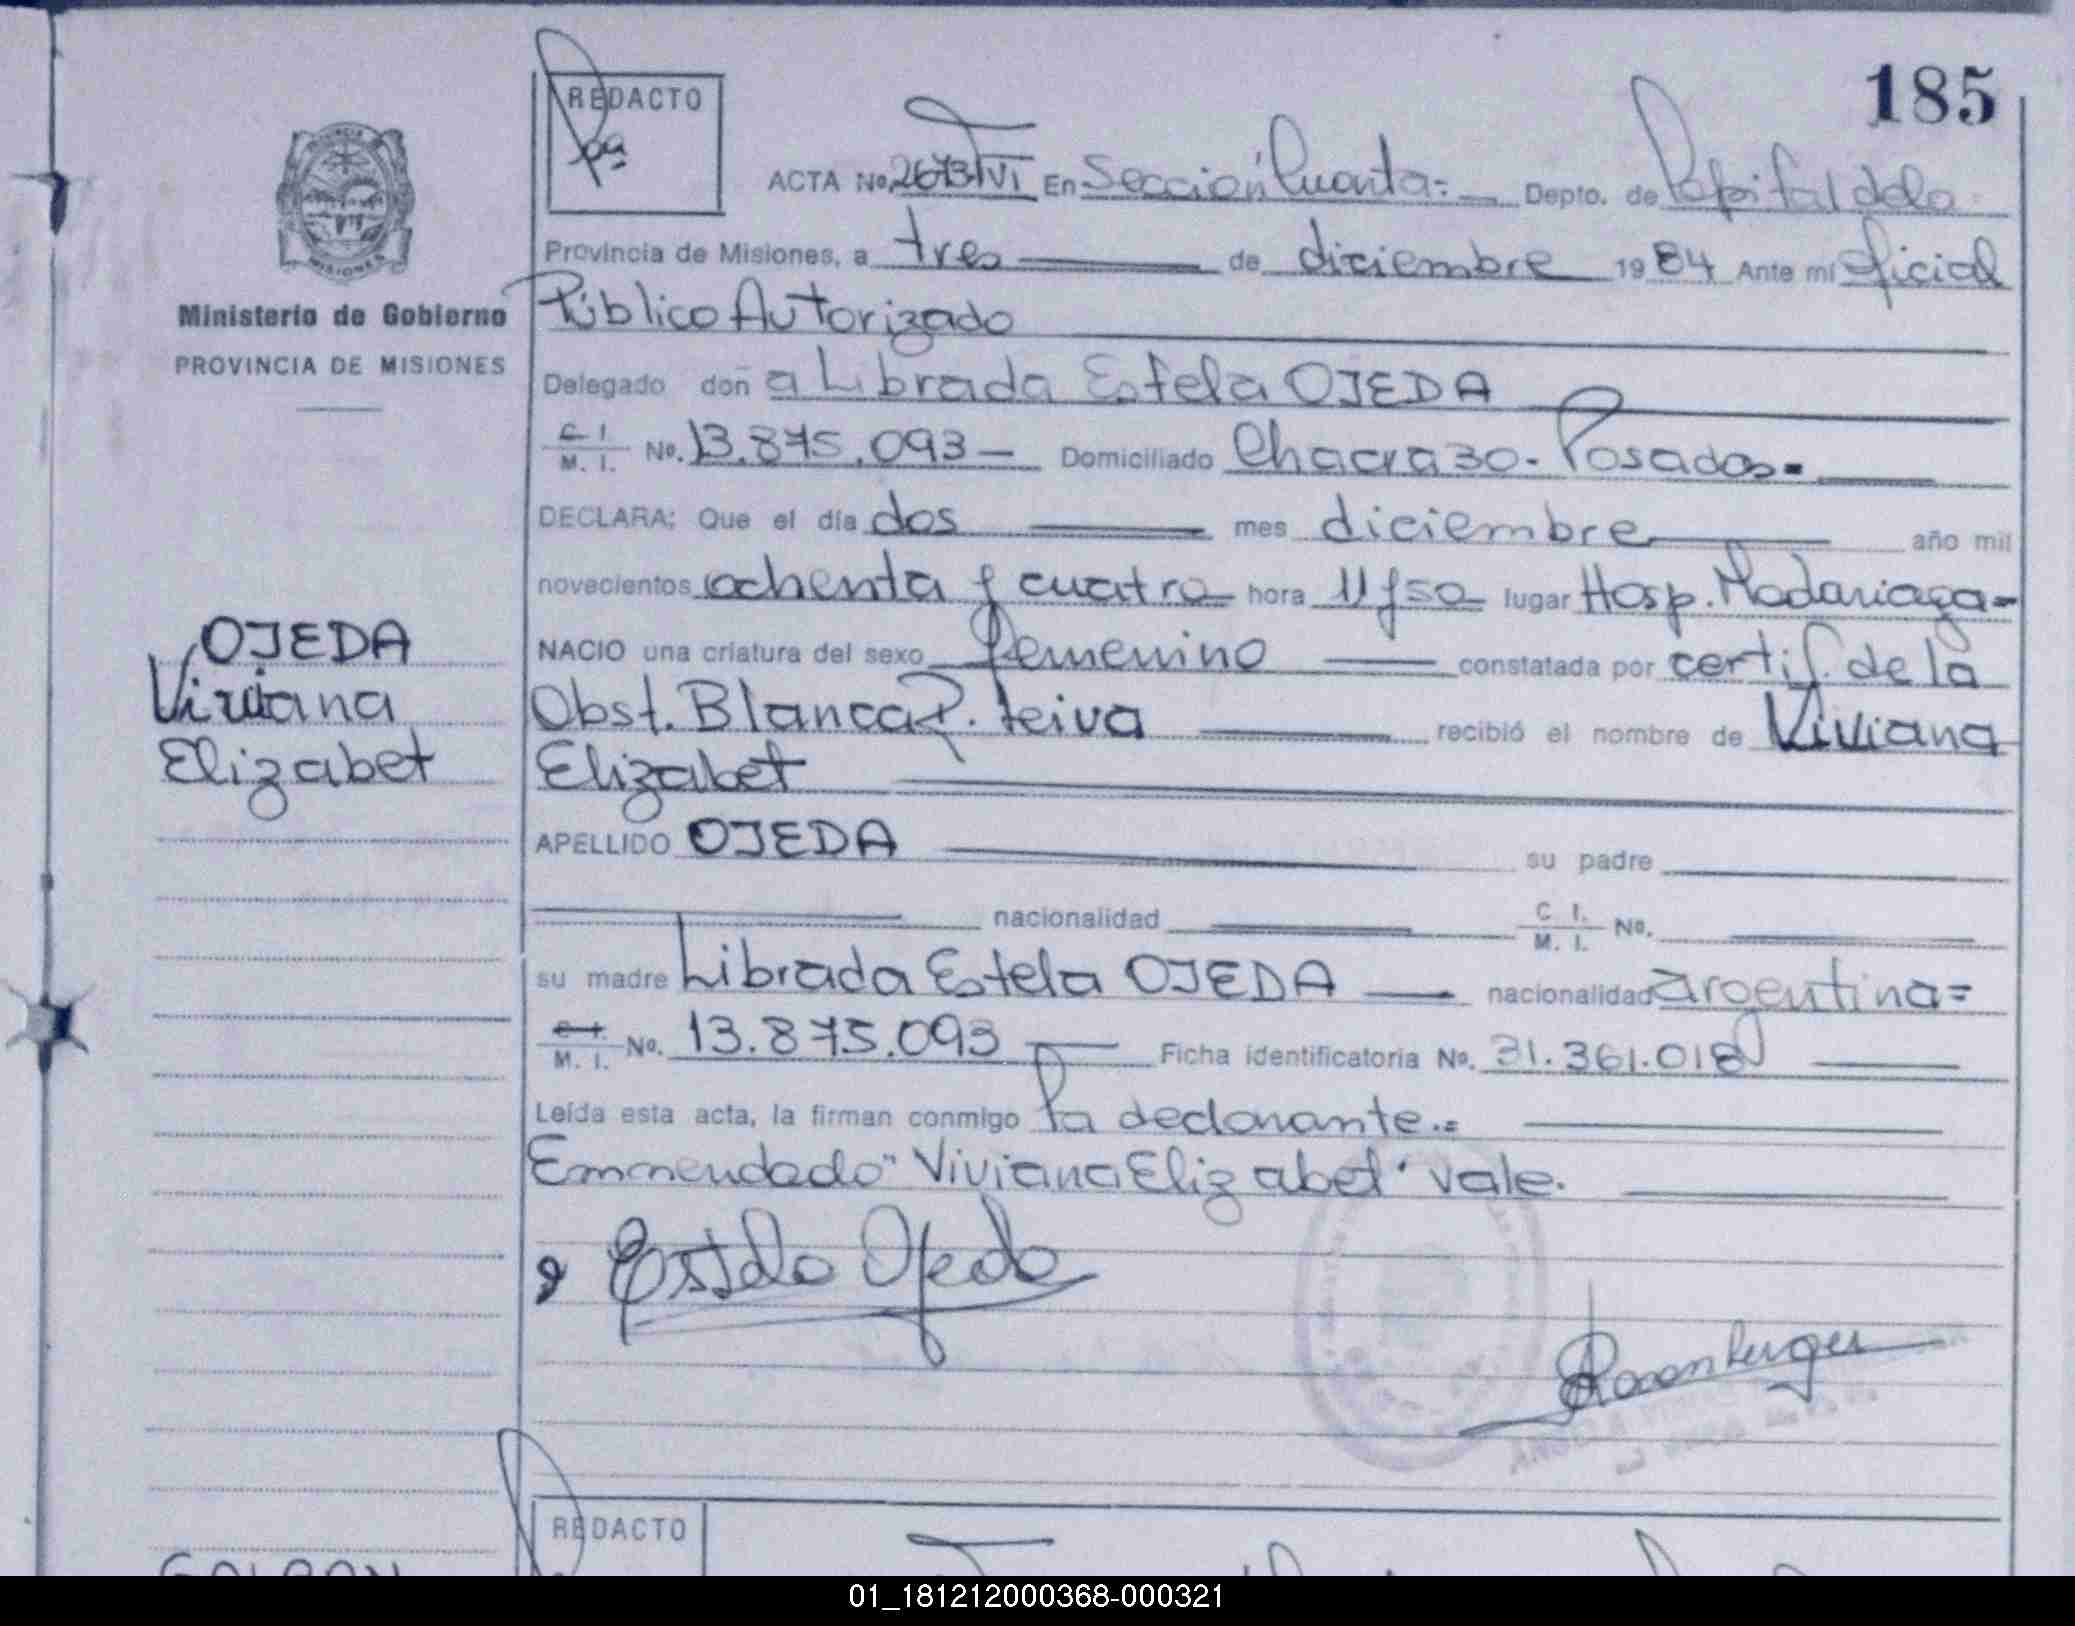 185
REDACTO
ACTA No. 2673 TVI En Sección Cuarta = Depto. de Capital de la
Provincia de Misiones, a tres de diciembre 1984 Ante mí Oficial
Público Autorizado
Delegado doña Librada Estela OJEDA
C. I. / M. I. No. 13.875.093 — Domiciliado Chacra 30 - Posadas =
DECLARA: Que el día dos mes diciembre año mil
novecientos ochenta y cuatro hora 11 y 50 lugar Hosp. Madariaga =
NACIO una criatura del sexo femenino constatada por certif. de la
Obst. Blanca R. Leiva recibió el nombre de Viviana
Elizabet
APELLIDO OJEDA su padre
nacionalidad C. I. / M. I. No.
su madre Librada Estela OJEDA — nacionalidad argentina =
C. I. / M. I. No. 13.875.093 Ficha identificatoria No. 31.361.018
Leída esta acta, la firman conmigo la declarante.=
Enmendado "Viviana Elizabet" vale.
Estela Ojeda
PROVINCIA
MISIONES
Ministerio de Gobierno
PROVINCIA DE MISIONES
OJEDA
Viviana
Elizabet
REDACTO
01_181212000368-000321